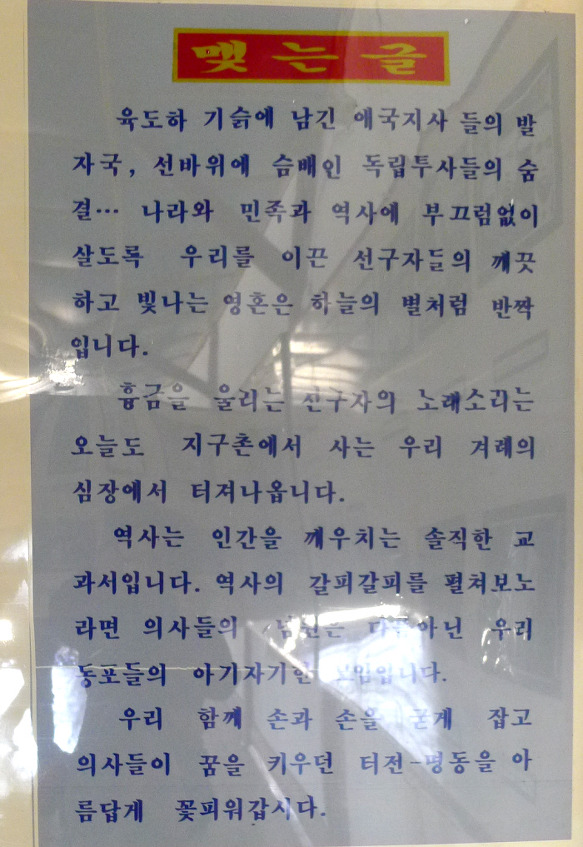 맺는글
육도하 기슭에 남긴 애국지사 들의 발
자국, 선바위에 슴배인 독립투사들의 숨
결… 나라와 민족과 역사에 부끄럼없이
살도록 우리를 이끈 선구자들의 깨끗
하고 빛나는 영혼은 하늘의 별처럼 반짝
입니다.
흉금을 울리는 선구자의 노래소리는
오늘도 지구촌에서 사는 우리 겨레의
심장에서 터져나옵니다.
역사는 인간을 깨우치는 솔직한 교
과서입니다. 역사의 갈피갈피를 펼쳐보노
라면 의사들의 다름아닌 우리
동포들의 아기자기한
우리 함께 손과 손을 굳게 잡고
의사들이 꿈을 키우던 터전-명동을 아
름답게 꽃피워갑시다.